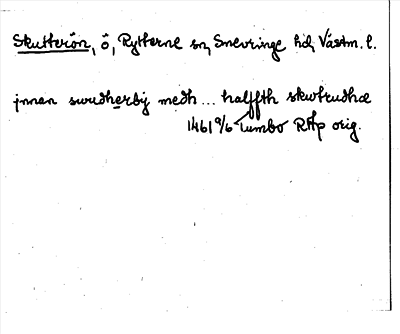 Skutterön, ö, Rytterne sn, Snevringe hd, Västm. l.
jnnan swudherbij medh ... halffth skwtrudhæ
1461 9/6 Tumbo RAp orig.